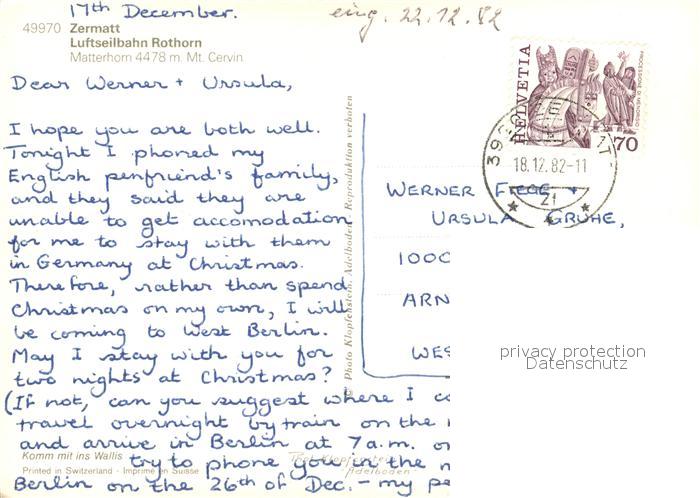 17th December.
eing. 22.12.82
49970 Zermatt
Luftseilbahn Rothorn
Matterhorn 4478 m. Mt. Cervin
Dear Werner + Ursula,
I hope you are both well.
Tonight I phoned my
English penfriend's family,
and they said they are
unable to get accomodation
for me to stay with them
in Germany at Christmas.
Therefore, rather than spend
Christmas on my own, I will
be coming to West Berlin.
May I stay with you for
two nights at Christmas?
(If not, can you suggest where I c
travel overnight by train on the
and arrive in Berlin at 7 a.m. o
try to phone you in the
Berlin on the 26th of Dec. - my pe
Komm mit ins Wallis
Printed in Switzerland - Imprimé en Suisse
© Photo Klopfenstein, Adelboden Reproduktion verboten
Phot. Klopfenstein
Adelboden
HELVETIA
PROCESSIONE DI MENDRISIO
70
18.12.82-11
21
WERNER +
URSULA GRUHE,
1000
ARN
WES
privacy protection
Datenschutz